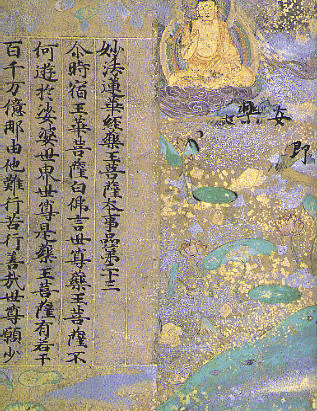 即
安樂世
妙法蓮華經藥王菩薩本事品第二十三
尒時宿王華菩薩白佛言世尊藥王菩薩云
何遊於娑婆世界世尊是藥王菩薩有若干
百千万億那由他難行苦行善哉世尊願少